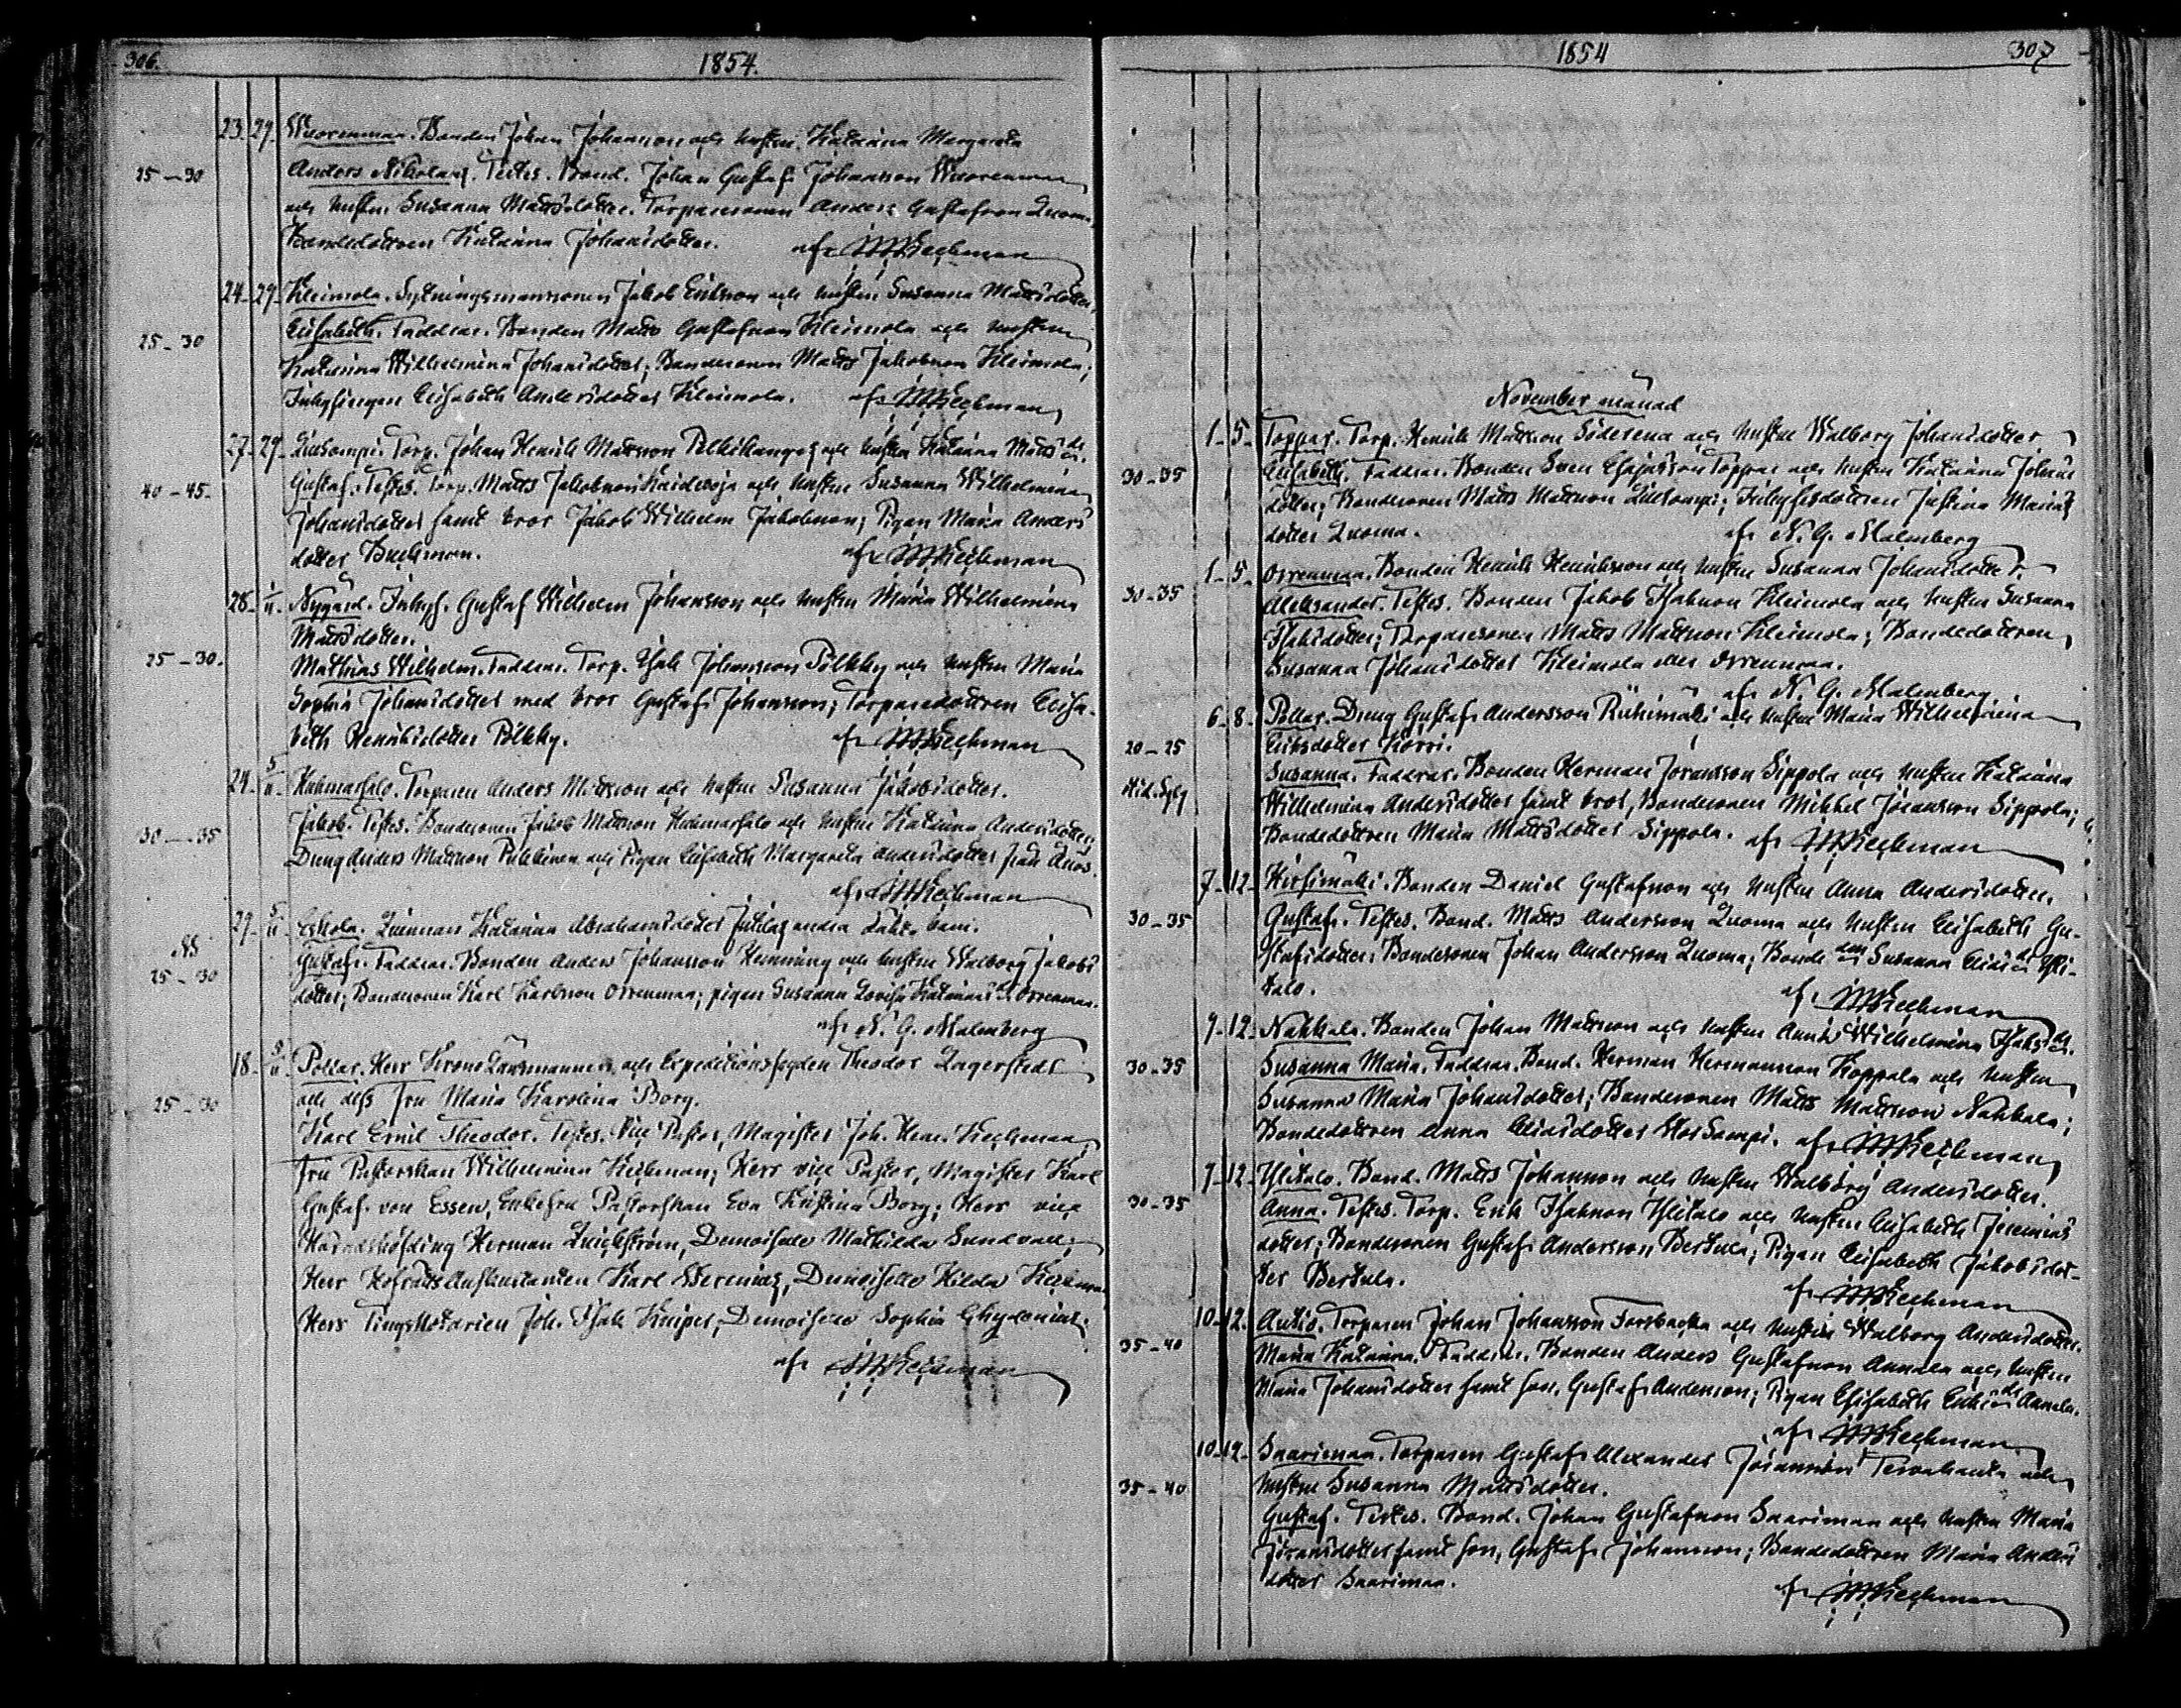 306.
1854.
23. 29. Wuorenmaa. Bonden Johan Johansson och hustru Katarina Margareta
25-30
Anders Nikolaus. Testes. Bond. Johan Gustaf Johansson Wuorenmaa
och hustru Susanna Mattsdotter. Torparesonen Anders Gustafsson Luoma,
Bondedottren Katarina Johansdotter. af JHKeckman
24. 29. Kleimola. Sytningsmanssonen Jakob Eriksson och hustru Susanna Mattsdotter,
25-30
Elisabeth. Faddrar. Bonden Matts Gustafsson Kleimola och hustru
Katarina Wilhelmina Johansdotter; Bondesonen Matts Jakobsson Kleimola;
Inhysingen Elisabeth Andersdotter Kleimola. af JHKeckman
27. 29. Torp. Johan Henrik Mattsson och hustru Katarina Matts dr.
40-45.
Gustaf. Testes. Torp. Matts Jakobsson och hustru Susanna Wilhelmina
Johansdotter samt bror Jakob Wilhelm Jakobsson; Pigan Maria Anders
dotter Backman. af JHKeckman
28. 1/11. Nygård. Inhys. Gustaf Wilhelm Johansson och hustru Maria Wilhelmina
Mattsdotter.
25-30.
Mathias Wilhelm. Faddrar. Torp. Isak Johansson Pölkky och hustru Maria
Sophia Johansdotter med bror Gustaf Johansson; Torparedottren Elisa-
beth Henriksdotter Pölkky. af JHKeckman
24. 5/11. Kuhmasalo. Torparen Anders Mattsson och hustru Susanna Jakobsdotter.
30-35
Jakob. Testes. Bondesonen Jakob Mattsson Kuhmasalo och hustru Katarina Andersdotter,
Dräng Anders Mattsson och Pigan Elisabeth Margareta Andersdotter
af JHKeckman
29. 5/11. Eskola. Qvinnan Katarina Abrahamsdotter andra barn.
25-30
Gustaf. Faddrar. Bonden Anders Johansson Hemming och hustru Walborg Jakobs
dotter; Bondesonen Karl Karlsson Orrenmaa; pigan Susanna Lovisa Orrenmaa.
af N. G. Malmberg
18. 5/11. Pollar. Herr Krono Länsmannen och Expeditionsfogden Theodor Lagerstedt
25-30
och dess Fru Maria Karolina Borg.
Karl Emil Theodor. Testes. Vice Pastor, Magister Joh. Hen. Keckman,
Fru Pastorskan Wilhelmina Keckman; Herr vice Pastor, Magister Karl
Gustaf von Essen, Enkefru Pastorskan Eva Kristina Borg; Herr vice
Häradshöfding Herman Demoiselle Mathilda Sundvall;
Herr Hofrätts Auskultanten Karl Demoiselle Hilda Keckman,
Herr Tings Notarien Joh. Isak Demoiselle Sophia Chydenius.
af JHKeckman
1854
307
November månad
1. 5. Toppar. Torp. Henrik Mattsson och hustru Walborg Johansdotter
30-35
Elisabeth. Faddrar. Bonden Sven Toppar och hustru Katarina Johans
dotter; Bondesonen Matts Mattsson Inhysesdottren Justina Marias
dotter Luoma. af N. G. Malmberg
1. 5. Orrenmaa. Bonden Henrik Henriksson och hustru Susanna Johansdotter.
30-35
Aleksander. Testes. Bonden Jakob Isaksson Kleimola och hustru Susanna
Isaksdotter; Torparesonen Matts Mattsson Kleimola; Bondedottren
Susanna Johansdotter Kleimola eller Orrenmaa.
af N. G. Malmberg
6. 8. Pollar. Dräng Gustaf Andersson Riihimäki och hustru Maria Wilhelmina
20-25
Eriksdotter Korri.
Susanna. Faddrar. Bonden Herman Johansson Sippola och hustru Katarina
Wilhelmina Andersdotter samt bror, Bondesonen Mikkel Johansson Sippola;
Bondedottren Maria Mattsdotter Sippola. af JHKeckman
7. 12. Hirsimäki. Bonden Daniel Gustafsson och hustru Anna Andersdotter.
30-35
Gustaf. Testes. Bond. Matts Andersson Luoma och hustru Elisabeth Gu-
stafsdotter; Bondesonen Johan Andersson Luoma; Bonde dan Susanna Elias dr Yli-
talo. af JHKeckman
9. 12. Nahkala. Bonden Johan Mattsson och hustru Anna Wilhelmina Isaks dr.
30-35
Susanna Maria. Faddrar. Bond. Herman Hermansson Koppala och hustru
Susanna Maria Johansdotter; Bondesonen Matts Mattsson Nahkala;
Bondedottren Anna Eliasdotter af JHKeckman
7. 12. Ylitalo. Bond. Matts Johansson och hustru Walborg Andersdotter.
30-35
Anna. Testes. Torp. Erik Isaksson Ylitalo och hustru Elisabeth Jeremias
dotter; Bondesonen Gustaf Andersson Bertula; Pigan Elisabeth Jakobsdot-
ter Bertula. af JHKeckman
10. 12. Antio. Torparen Johan Johansson Forsbacka och hustru Walborg Andersdotter.
35-40
Maria Katarina. Faddrar. Bonden Anders Gustafsson Annala och hustru
Maria Johansdotter samt son, Gustaf Andersson; Pigan Elisabeth Eriks dr Annala.
af JHKeckman
10. 12. Saarimaa. Torparen Gustaf Alexander Johansson Tervahauta och
35-40
hustru Susanna Mattsdotter.
Gustaf. Testes. Bond. Johan Gustafsson Saarimaa och hustru Maria
Johansdotter samt son, Gustaf Johansson; Bondedottren Maria Anders
dotter Saarimaa. af JHKeckman